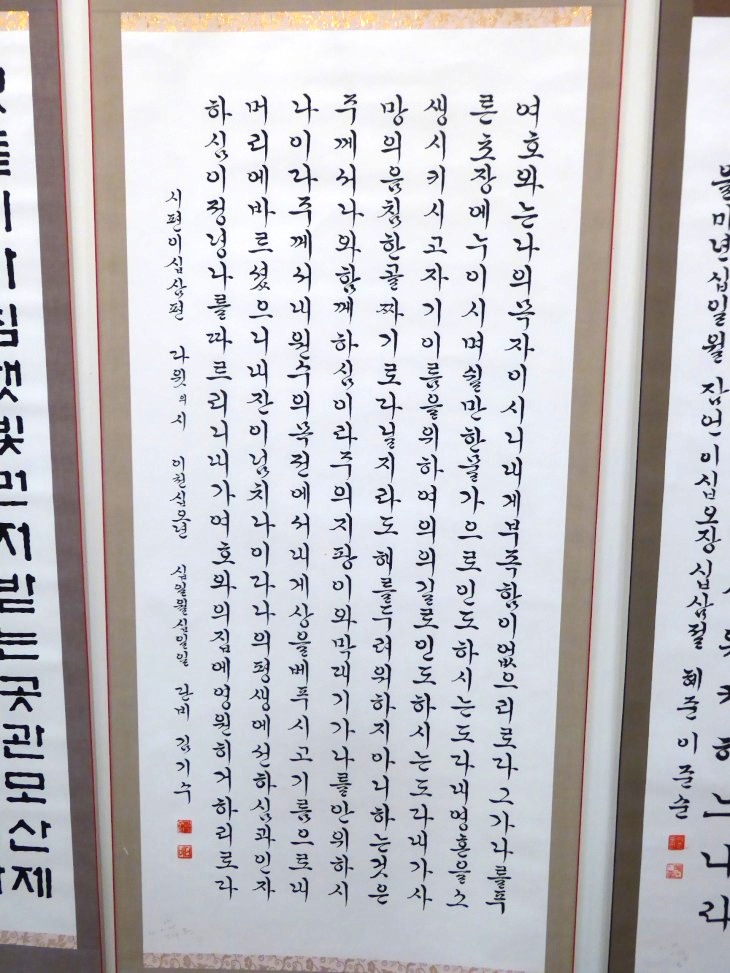 을미년십일월 잠언이십오장십삼절 혜준 이준순
여호와는나의목자이시니내게부족함이없으리로다그가나를푸
른초장에누이시며쉴만한물가으로인도하시는도다내영혼을소
생시키시고자기이름을위하여의의길로인도하시는도다내가사
망의음침한골짜기로다닐지라도해를두려워하지아니하는것은
주께서나와함께하심이라주의지팡이와막대기가나를안위하시
나이다주께서내원수의목전에서내게상을베푸시고기름으로내
머리에바르셨으니내잔이넘치나이다나의평생에선하심과인자
하심이정녕나를따르리니내가여호와의집에영원히거하리로다
시편이십삼편 다윗의시 이천십오년 십일월십일일 란비 김기수
햇빛먼저받는곳관모산제